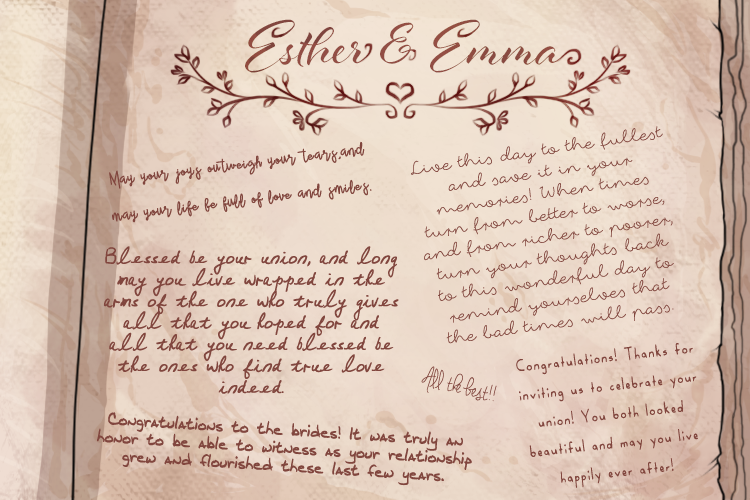 Esther & Emma
May your joys outweigh your tears, and
may your life be full of love and smiles.
Blessed be your union, and long
may you live wrapped in the
arms of the one who truly gives
all that you hoped for and
all that you need blessed be
the ones who find true love
indeed.
Congratulations to the brides! It was truly an
honor to be able to witness as your relationship
grew and flourished these last few years.
Live this day to the fullest
and save it in your
memories! When times
turn from better to worse,
and from richer to poorer,
turn your thoughts back
to this wonderful day to
remind yourselves that
the bad times will pass.
All the best!!
Congratulations! Thanks for
inviting us to celebrate your
union! You both looked
beautiful and may you live
happily ever after!